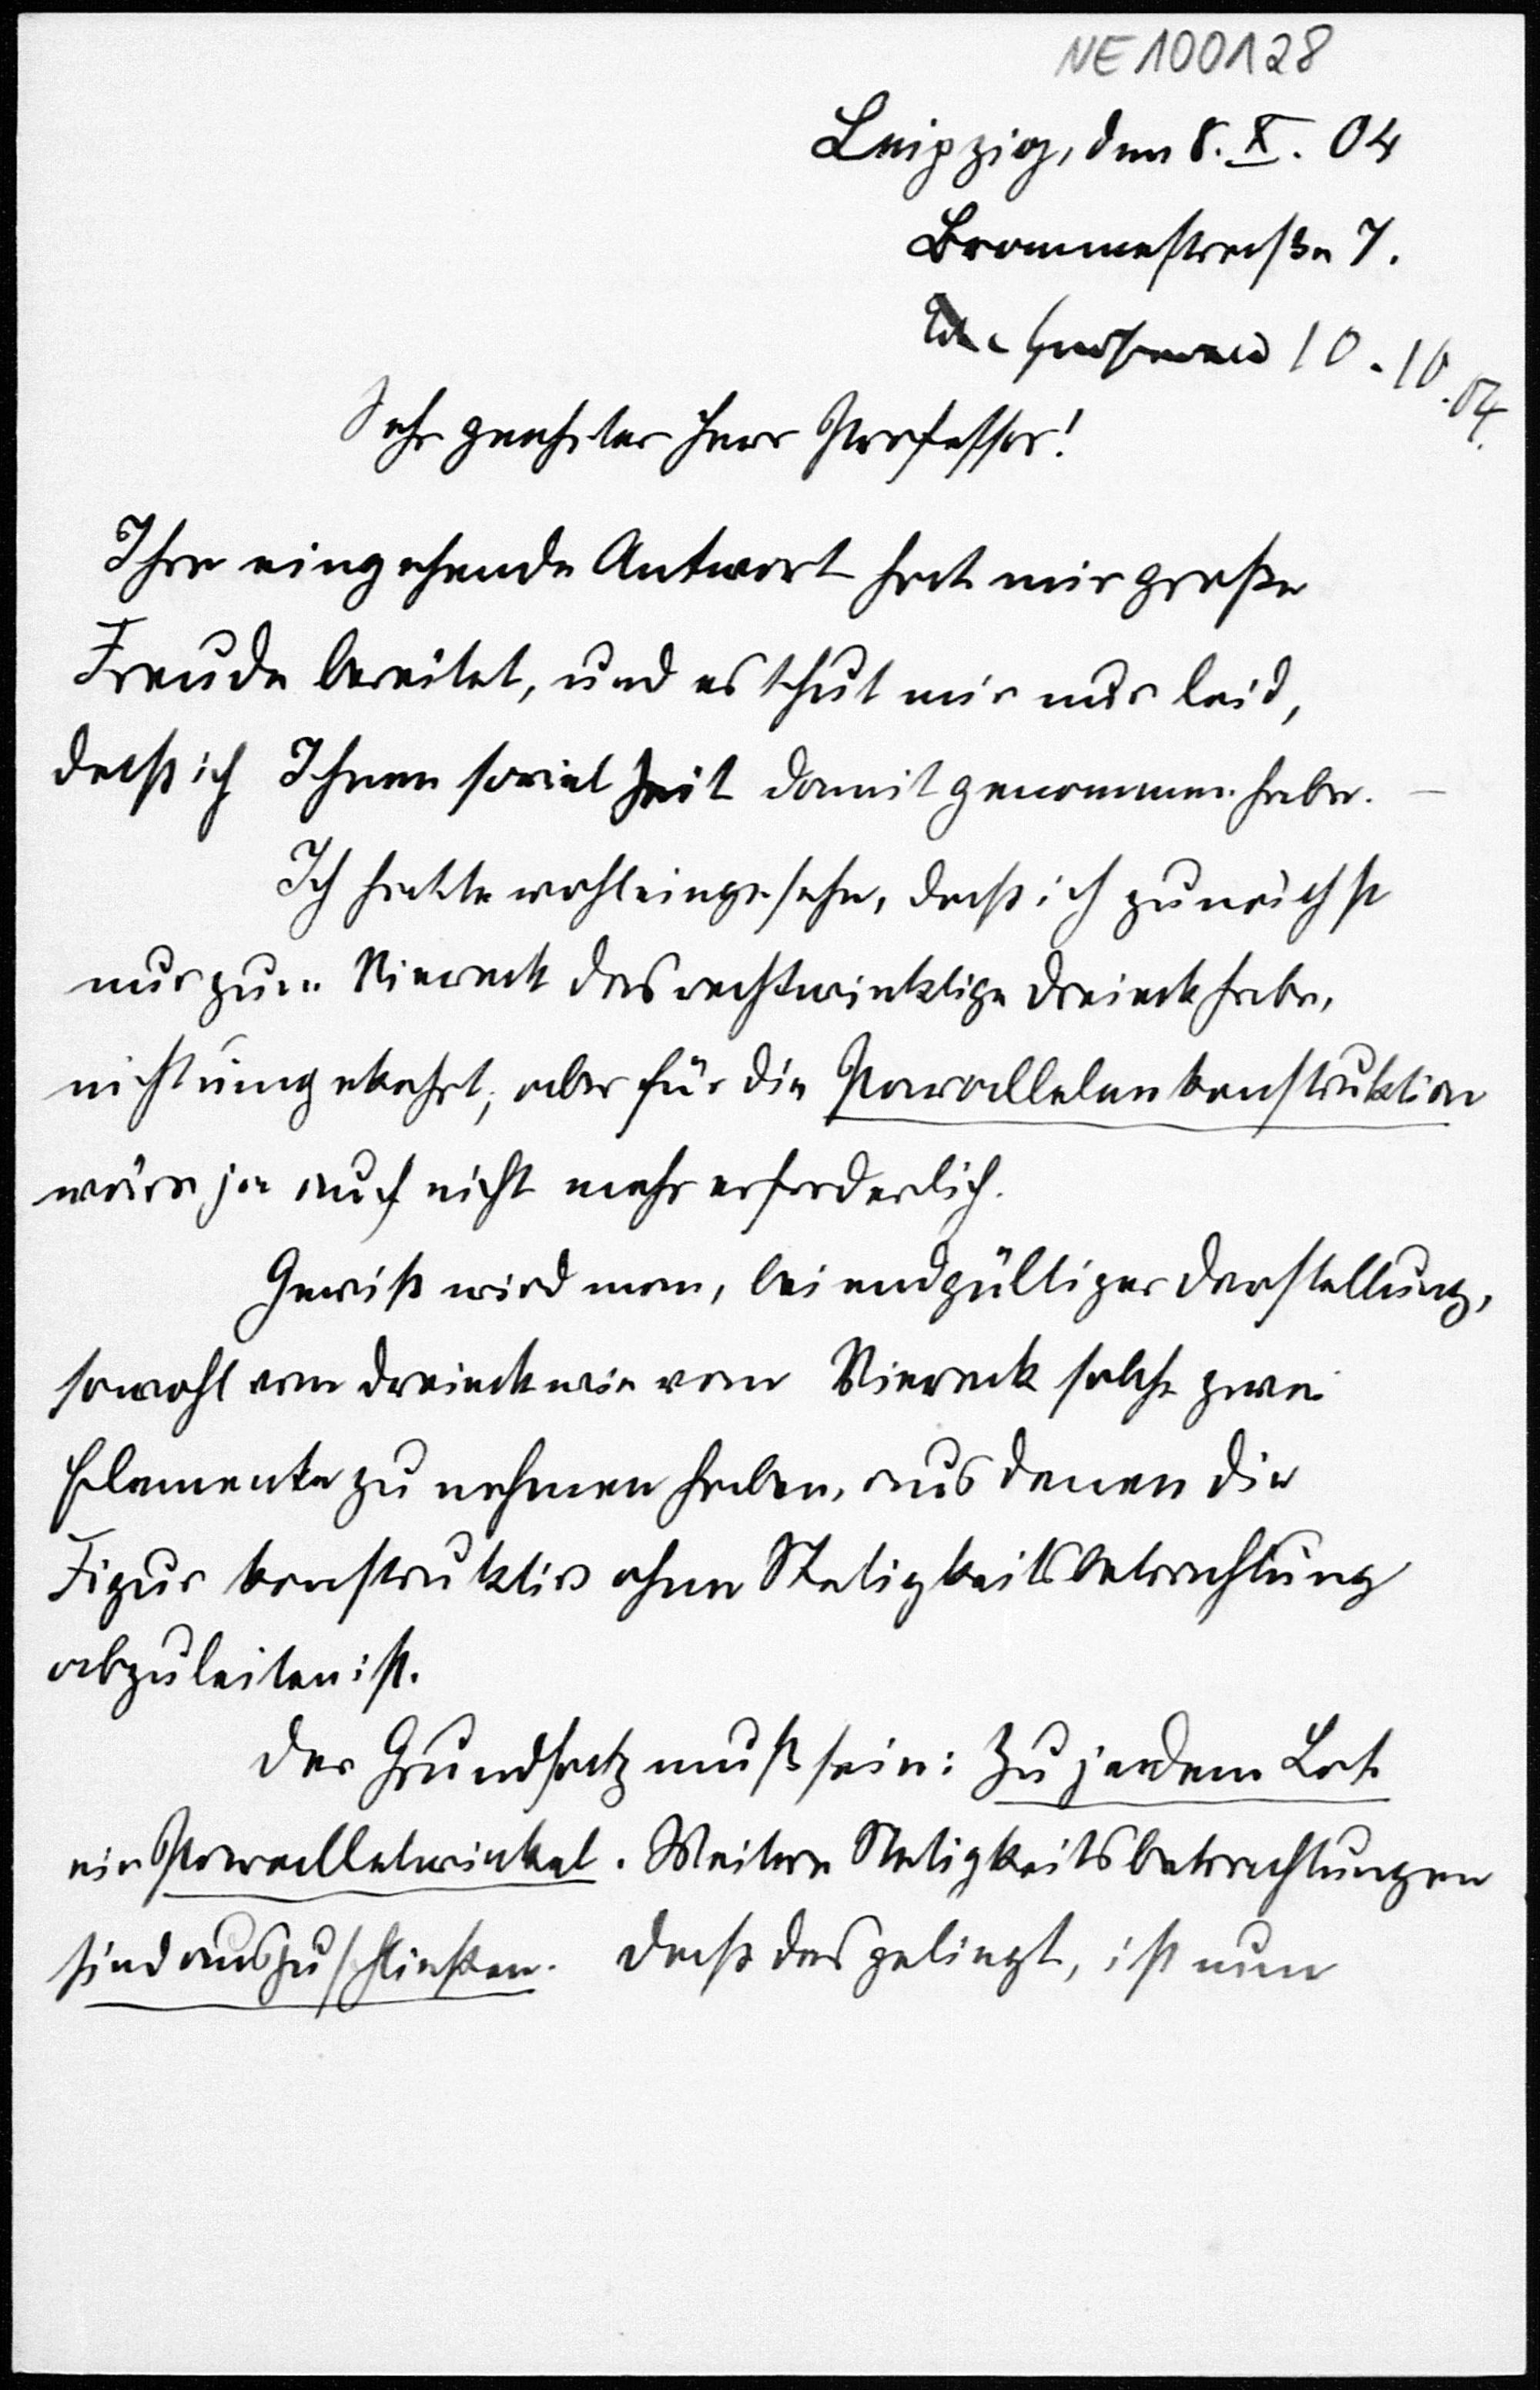 NE100128
Leipzig, den 8. X. 04
Brommestraße 7.
10. 10. 04.
Sehr geehrter Herr Professor!
Ihre eingehende Antwort hat mir große
Freude bereitet, und es thut mir nur leid,
daß ich Ihnen soviel Zeit damit genommen habe. –
Ich hatte wohl eingesehn, daß ich zunächst
nur zum Viereck das rechtwinklige Dreieck habe,
nicht umgekehrt; aber für die Parallelenkonstruktion
wäre ja auch nicht mehr erforderlich.
Gewiß wird man, bei endgültiger Darstellung,
sowohl vom Dreieck wie vom Viereck solche zwei
Elemente zu nehmen haben, aus denen die
Figur konstruktiv ohne Stetigkeitsbetrachtung
abzuleiten ist.
Der Grundsatz muß sein: Zu jedem Lot
ein Parallelwinkel. Weitere Stetigkeitsbetrachtungen
sind auszuschließen. Daß das gelingt, ist nun